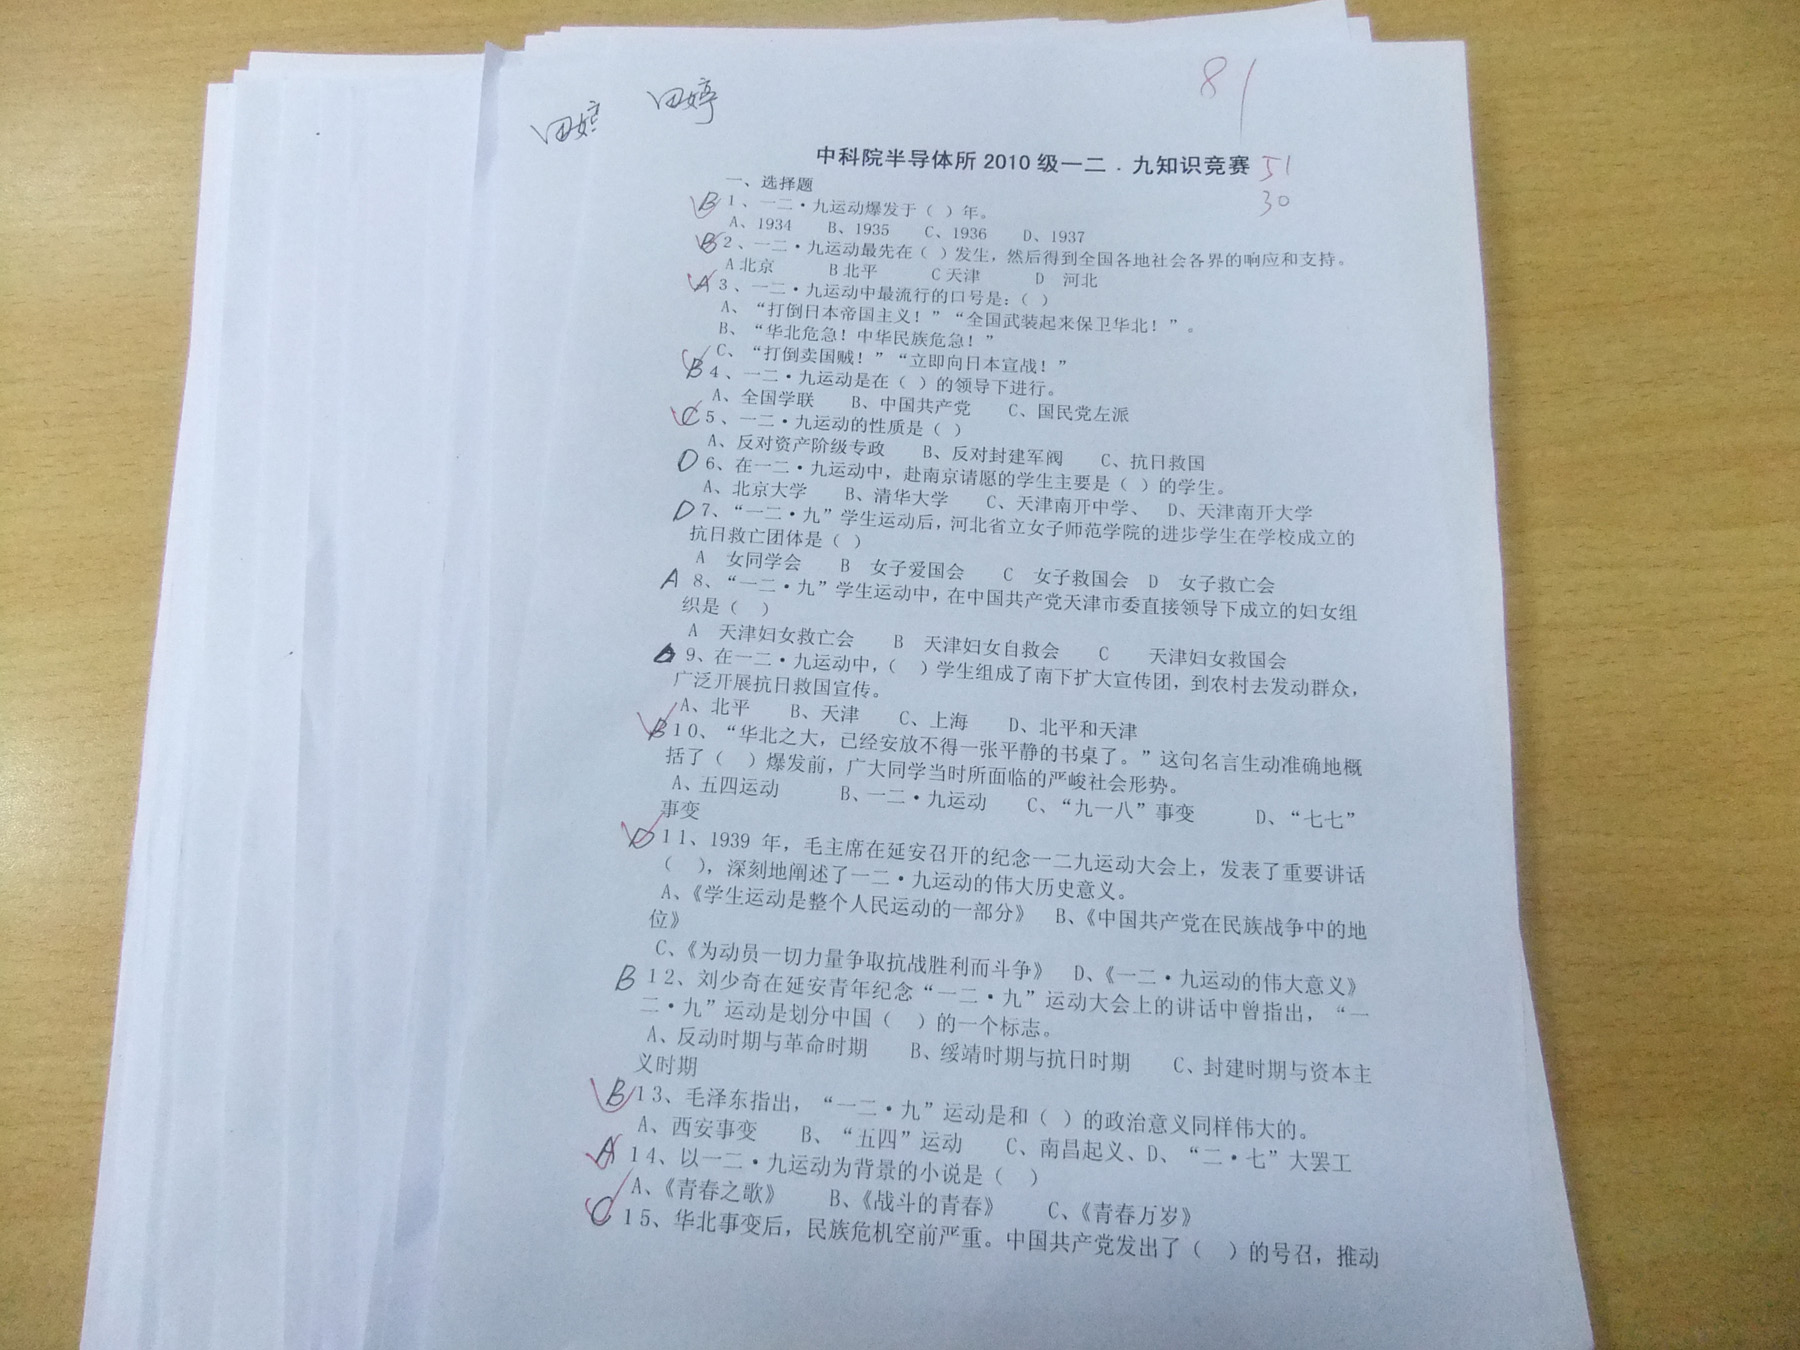 田婷 田婷
81
中科院半导体所 2010 级一二．九知识竞赛 51
30
一、选择题
B 1、一二·九运动爆发于（ ）年。
A、1934 B、1935 C、1936 D、1937
B 2、一二·九运动最先在（ ）发生，然后得到全国各地社会各界的响应和支持。
A 北京 B 北平 C 天津 D 河北
A 3、一二·九运动中最流行的口号是：（ ）
A、“打倒日本帝国主义！”“全国武装起来保卫华北！”。
B、“华北危急！中华民族危急！”
C、“打倒卖国贼！”“立即向日本宣战！”
B 4、一二·九运动是在（ ）的领导下进行。
A、全国学联 B、中国共产党 C、国民党左派
C 5、一二·九运动的性质是（ ）
A、反对资产阶级专政 B、反对封建军阀 C、抗日救国
D 6、在一二·九运动中，赴南京请愿的学生主要是（ ）的学生。
A、北京大学 B、清华大学 C、天津南开中学、 D、天津南开大学
D 7、“一二·九”学生运动后，河北省立女子师范学院的进步学生在学校成立的
抗日救亡团体是（ ）
A 女同学会 B 女子爱国会 C 女子救国会 D 女子救亡会
A 8、“一二·九”学生运动中，在中国共产党天津市委直接领导下成立的妇女组
织是（ ）
A 天津妇女救亡会 B 天津妇女自救会 C 天津妇女救国会
D 9、在一二·九运动中，（ ）学生组成了南下扩大宣传团，到农村去发动群众，
广泛开展抗日救国宣传。
A、北平 B、天津 C、上海 D、北平和天津
B 10、“华北之大，已经安放不得一张平静的书桌了。”这句名言生动准确地概
括了（ ）爆发前，广大同学当时所面临的严峻社会形势。
A、五四运动 B、一二·九运动 C、“九一八”事变 D、“七七”
事变
D 11、1939 年，毛主席在延安召开的纪念一二九运动大会上，发表了重要讲话
（ ），深刻地阐述了一二·九运动的伟大历史意义。
A、《学生运动是整个人民运动的一部分》 B、《中国共产党在民族战争中的地
位》
C、《为动员一切力量争取抗战胜利而斗争》 D、《一二·九运动的伟大意义》
B 12、刘少奇在延安青年纪念“一二·九”运动大会上的讲话中曾指出，“一
二·九”运动是划分中国（ ）的一个标志。
A、反动时期与革命时期 B、绥靖时期与抗日时期 C、封建时期与资本主
义时期
B 13、毛泽东指出，“一二·九”运动是和（ ）的政治意义同样伟大的。
A、西安事变 B、“五四”运动 C、南昌起义、D、“二·七”大罢工
A 14、以一二·九运动为背景的小说是（ ）
A、《青春之歌》 B、《战斗的青春》 C、《青春万岁》
C 15、华北事变后，民族危机空前严重。中国共产党发出了（ ）的号召，推动